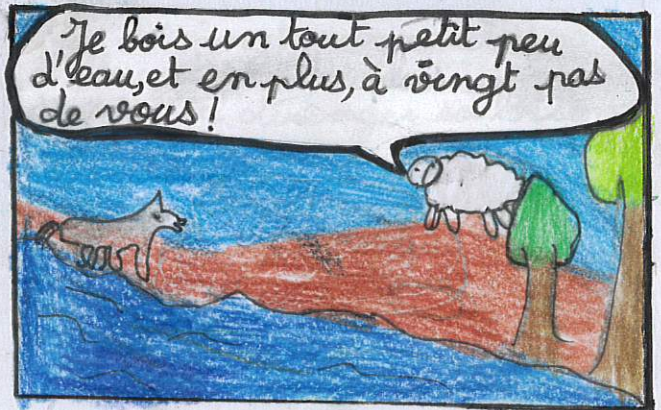 Je bois un tout petit peu
d'eau, et en plus, à vingt pas
de vous !